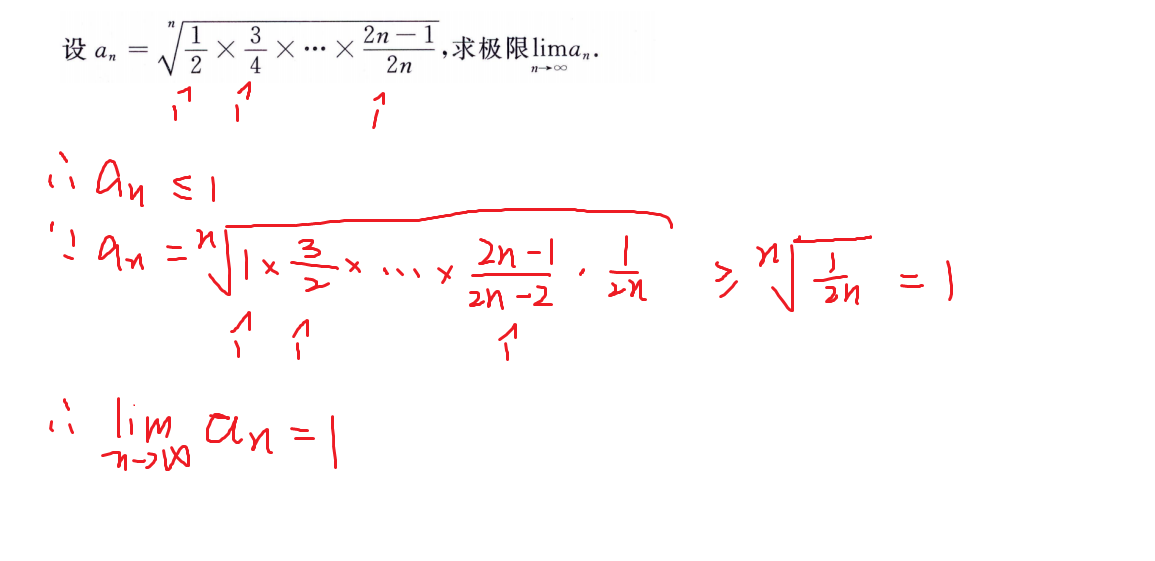 设 aₙ = ⁿ√(1/2 × 3/4 × ⋯ × (2n − 1)/2n) ,求极限 lim_{n→∞} aₙ.
↑ ↑ ↑
∴ aₙ ≤ 1
∵ aₙ = ⁿ√(1 × 3/2 × ⋯ × (2n−1)/(2n−2) · 1/2n) ≥ ⁿ√(1/2n) = 1
↑ ↑ ↑
∴ lim_{n→∞} aₙ = 1